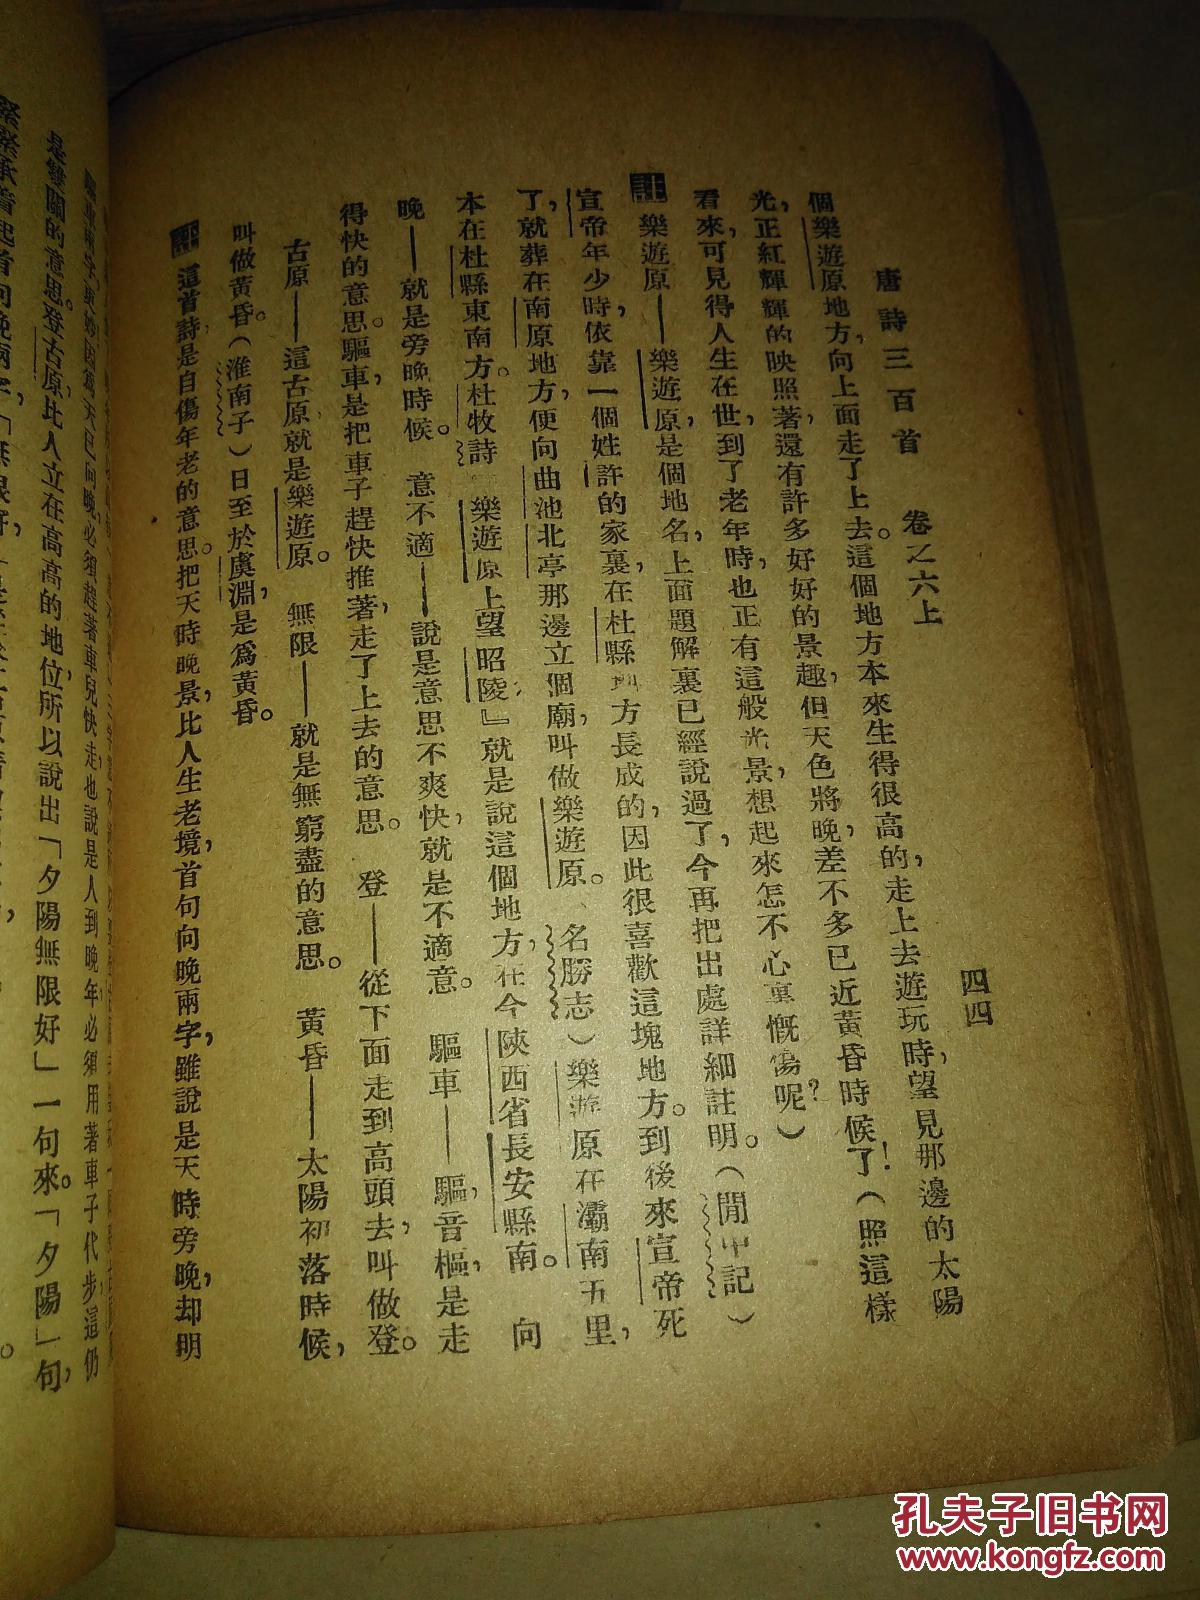 唐詩三百首　卷之六上
四四
個樂遊原地方，向上面走了上去。這個地方本來生得很高的，走上去遊玩時，望見那邊的太陽
光，正紅輝輝的映照著，還有許多好好的景趣，但天色將晚，差不多已近黃昏時候了！（照這樣
看來，可見得人生在世，到了老年時，也正有這般光景，想起來怎不心裏慨傷呢？）
註 樂遊原——樂遊原，是個地名，上面題解裏已經說過了，今再把出處詳細註明。（閒中記）
宣帝年少時，依靠一個姓許的家裏，在杜縣地方長成的，因此很喜歡這塊地方。到後來宣帝死
了，就葬在南原地方，便向曲池北亭那邊立個廟，叫做樂遊原。名勝志）樂遊原在灞南五里，
本在杜縣東南方。杜牧詩 樂遊原上望昭陵』就是說這個地方，在今陝西省長安縣南。　向
晚——就是旁晚時候。　意不適——說是意思不爽快，就是不適意。　驅車——驅，音樞，是走
得快的意思。驅車，是把車子趕快推著，走了上去的意思。　登——從下面走到高頭去，叫做登。
古原——這古原就是樂遊原。　無限——就是無窮盡的意思。　黃昏——太陽初落時候，
叫做黃昏。（淮南子）日至於虞淵，是爲黃昏。
這首詩，是自傷年老的意思。把天時晚景，比人生老境，首句向晚兩字，雖說是天時旁晚，却明
因爲天已向晚，必須趕著車兒快走，也說是人到晚年，必須用著車子代步，這仍
是雙關的意思。登古原，比人立在高高的地位，所以說出「夕陽無限好」一句來。「夕陽」句，
緊緊承着起首向晚兩字，「無限好」
孔夫子旧书网
www.kongfz.com